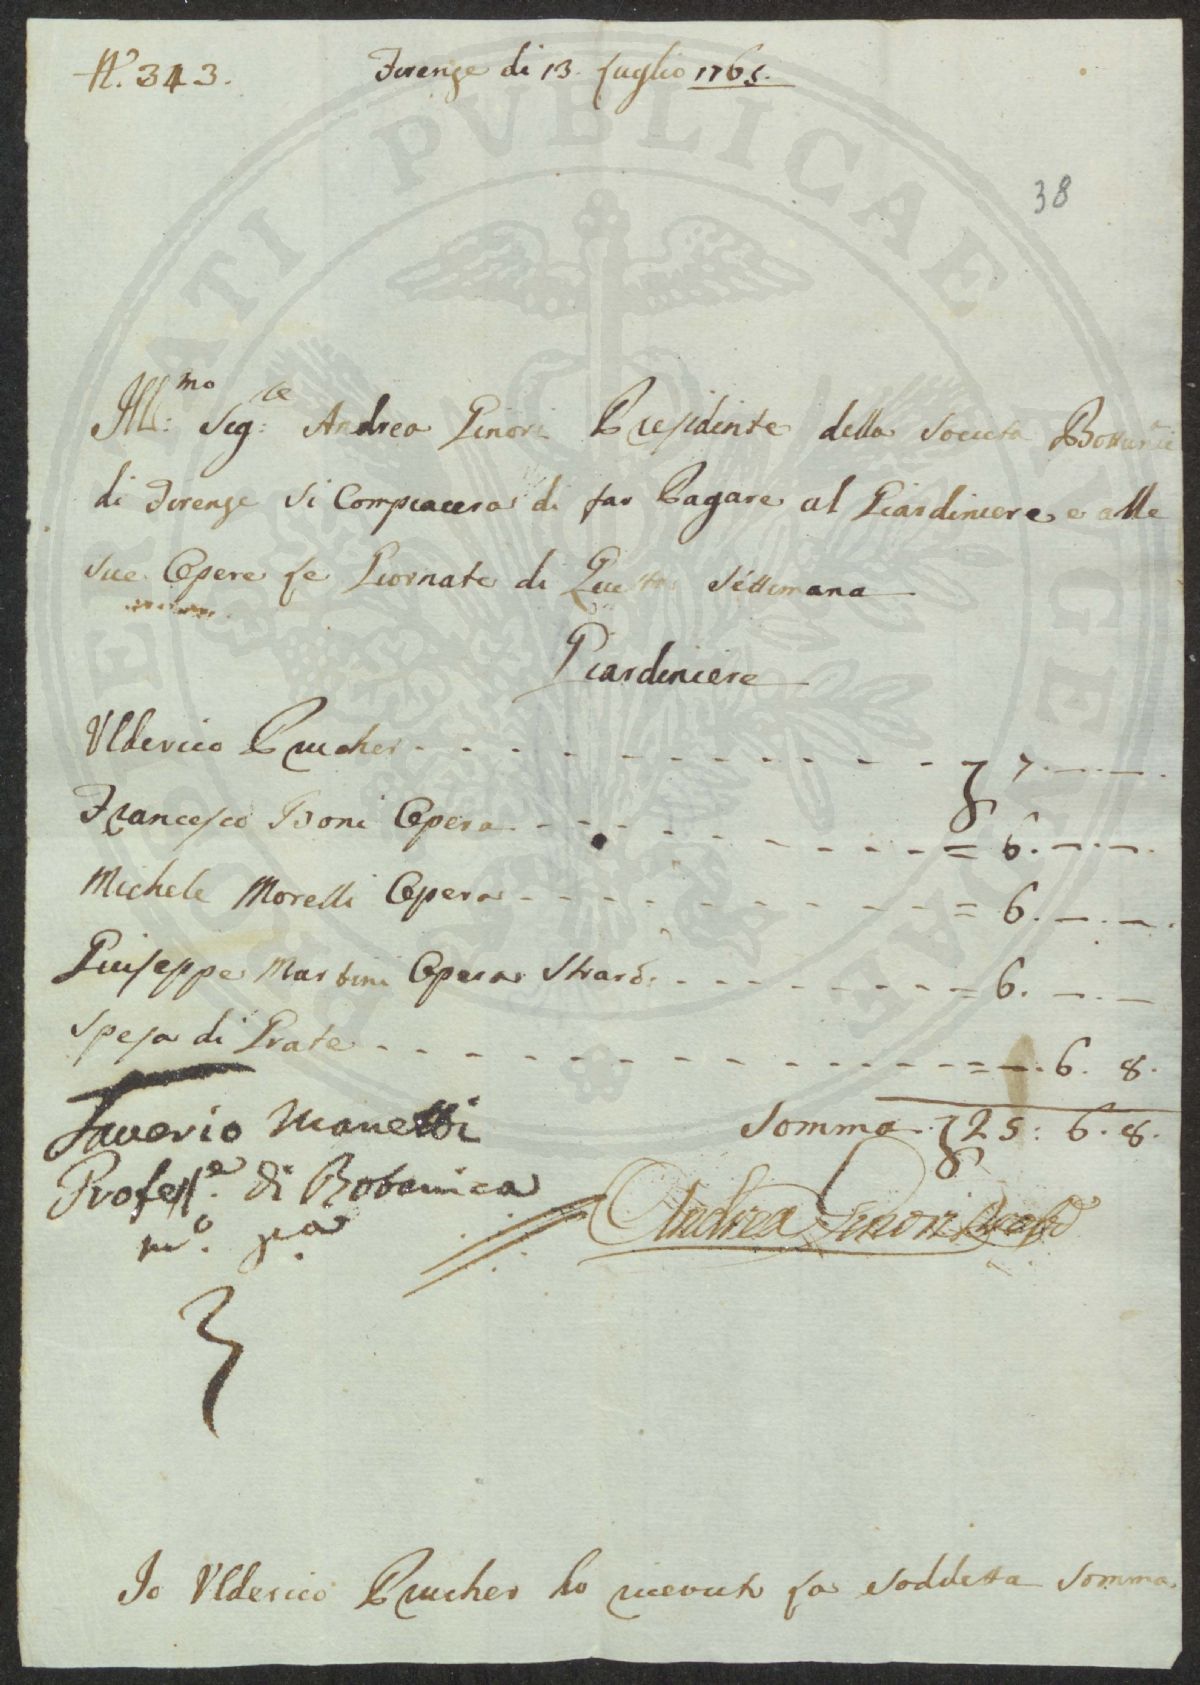 N.° 343.
Firenze di 13. Luglio 1765.
38
Ill:mo Sig:re Andrea Ginori Presidente della Societa Bottanic
di Firenze Si Compiacera di far Pagare al Giardiniere e alle
sue Opere le Giornate di Questa Settimana
Giardiniere
Ulderico Prucher - - - - - - - - - - 7. —. —.
Francesco Boni Opera - - - - - - - = 6. —. —.
Michele Morelli Opera - - - - - - - = 6. —. —.
Giuseppe Martini Opera - - - - - - = 6. —. —
Spesa di Grate - - - - - - - - - - = —. 6. 8.
Somma 25: 6. 8.
Saverio Manetti
Profess.e di Botanica
m.o pa
Andrea Ginori
Io Ulderico Prucher ho riceuto la soddetta Somma